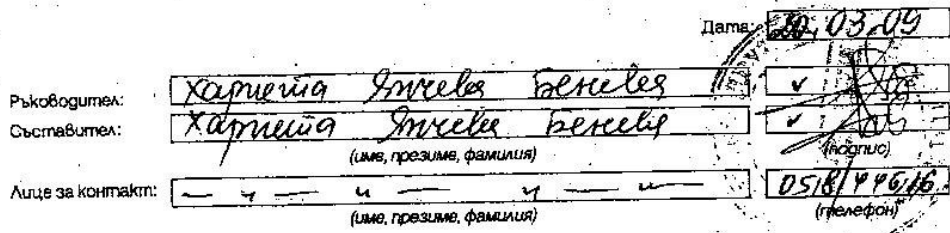 Дата: 20.03.09
Ръководител: Хариета Янчева Бенева
Съставител: Хариета Янчева Бенева
(име, презиме, фамилия) (подпис)
Лице за контакт: — и — и — и — и —
(име, презиме, фамилия) (телефон)